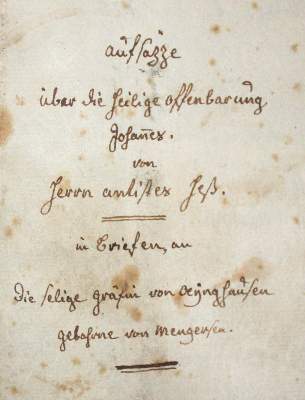 aufsäzze
über die heilige offenbarung
Johanes.
von
Herrn antistes Heß.
in Briefen, an
Die selige gräfin von Oeÿnghausen
gebohrne von Mengersen.